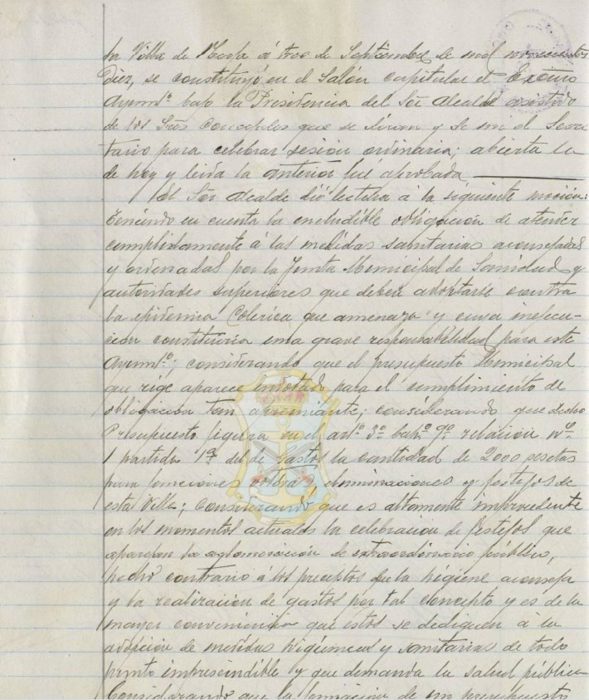 la Villa de Marín á tres de Septiembre de mil novecientos
Diez, se constituyó en el Salón Capitular el Excmo
Ayuntº bajo la Presidencia del Sor Alcalde asistido
de los Sres Concejales que se sirven y de mi el Secre
tario para celebrar sesión ordinaria; abierta la
de hoy y leida la anterior fué aprobada
El Sor Alcalde dió lectura á la siguiente moción:
Teniendo en cuenta la ineludible obligación de atender
cumplidamente á las medidas sanitarias aconsejadas
y ordenadas por la Junta Municipal de Sanidad y
autoridades superiores que deben adoptarse contra
la epidemia Colerica que amenaza y cuya inejecu-
ción constituiria una grave responsabilidad para este
Ayuntº; considerando que el presupuesto Municipal
que rige aparece para el cumplimiento de
obligación tan apremiante; considerando que dicho
Presupuesto figura en el artº 3º capº 9º relación nº
1 partida 1ª del de gastos la cantidad de 2000 pesetas
para funciones iluminaciones y festejos de
esta Villa; considerando que es altamente improcedente
en los momentos actuales la celebración de festejos que
aparejan la aglomeración de extraordinario público,
hecho contrario á los preceptos que la higiene aconseja
y la realización de gastos por tal concepto y es de la
mayor conveniencia que estos se dediquen á la
adopción de medidas higiénicas y sanitarias de todo
punto imprescindible y que demanda la salud pública
Considerando que la de un presupuesto